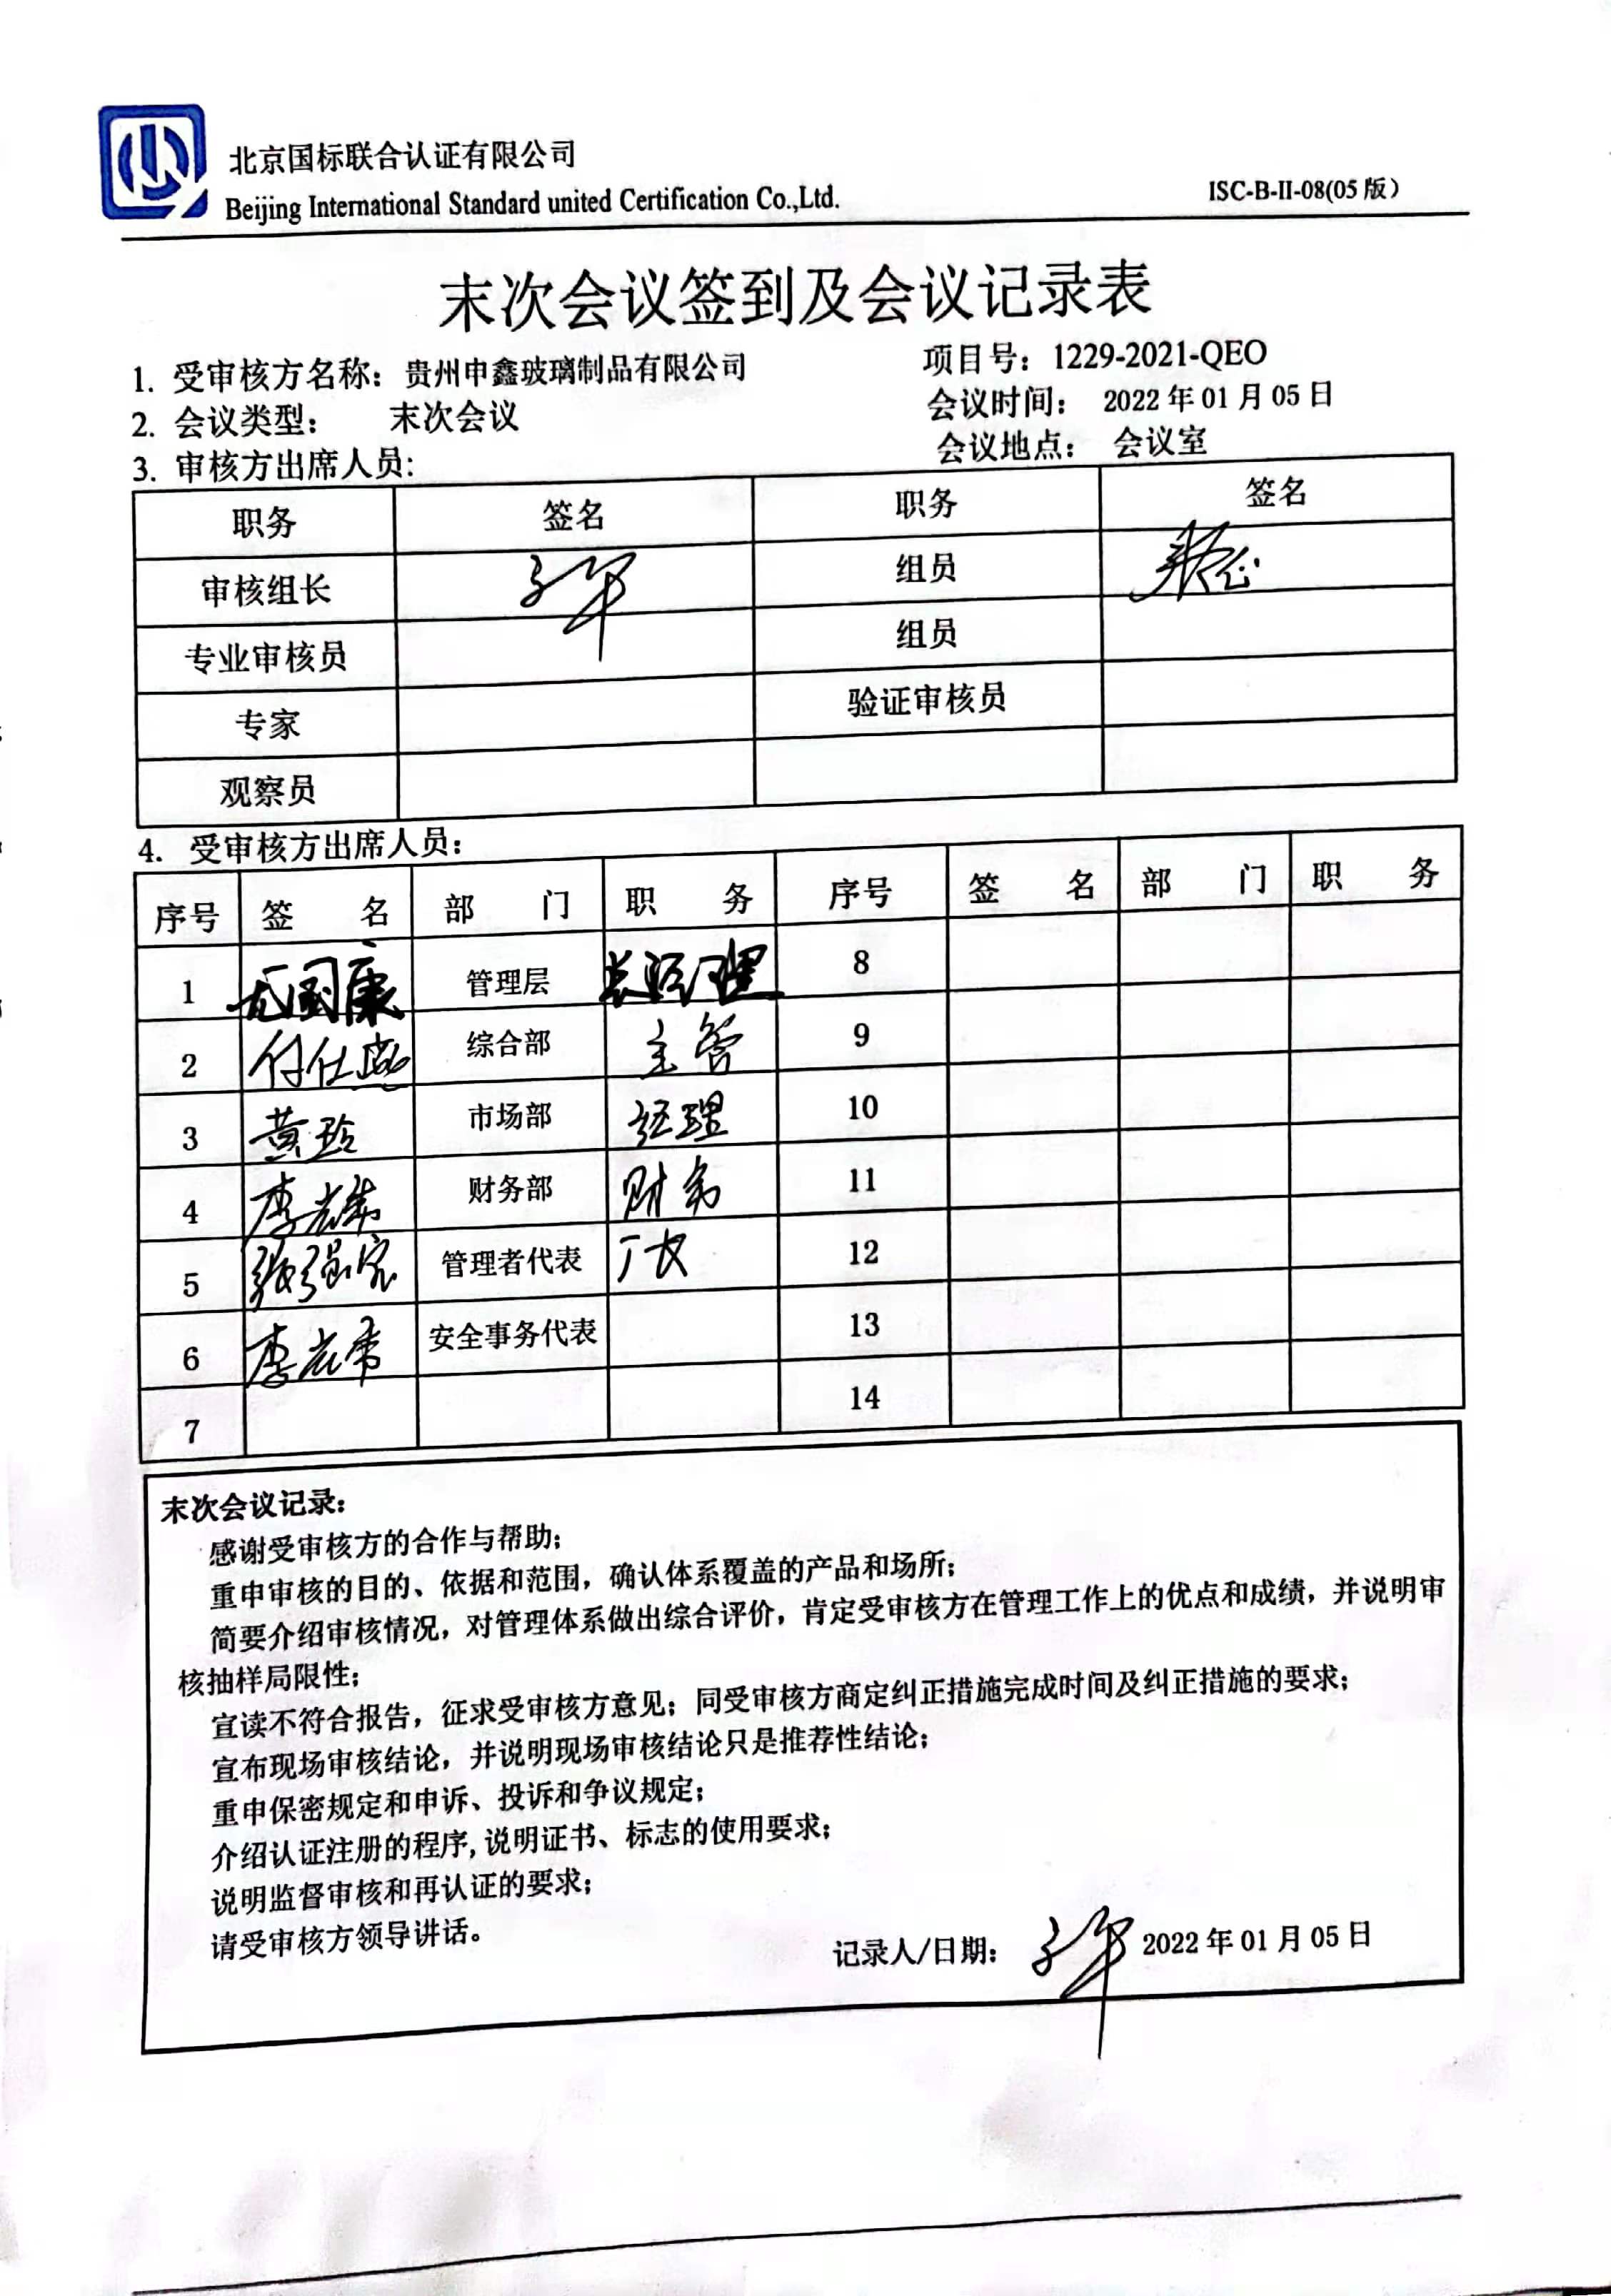 北京国标联合认证有限公司
Beijing International Standard united Certification Co.,Ltd.
ISC-B-II-08(05 版)
末次会议签到及会议记录表
1. 受审核方名称：贵州申鑫玻璃制品有限公司 项目号：1229-2021-QEO
2. 会议类型： 末次会议 会议时间： 2022 年 01 月 05 日
3. 审核方出席人员: 会议地点： 会议室
职务 签名 职务 签名
审核组长 组员
专业审核员 组员
专家 验证审核员
观察员
4. 受审核方出席人员：
序号 签 名 部 门 职 务 序号 签 名 部 门 职 务
1 管理层 8
2 付仕 综合部 主管 9
3 黄玲 市场部 经理 10
4 李 财务部 财务 11
5 张强 管理者代表 厂长 12
6 李 安全事务代表 13
7 14
末次会议记录：
感谢受审核方的合作与帮助；
重申审核的目的、依据和范围，确认体系覆盖的产品和场所；
简要介绍审核情况，对管理体系做出综合评价，肯定受审核方在管理工作上的优点和成绩，并说明审
核抽样局限性；
宣读不符合报告，征求受审核方意见；同受审核方商定纠正措施完成时间及纠正措施的要求；
宣布现场审核结论，并说明现场审核结论只是推荐性结论；
重申保密规定和申诉、投诉和争议规定；
介绍认证注册的程序,说明证书、标志的使用要求；
说明监督审核和再认证的要求；
请受审核方领导讲话。
记录人/日期： 2022 年 01 月 05 日